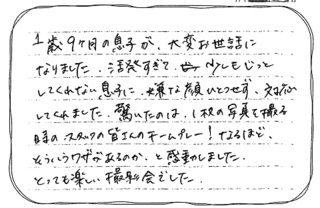 1歳9ヶ月の息子が、大変お世話に
なりました。活発すぎて、少しもじっと
してくれない息子に、嫌な顔ひとつせず、対応
してくれました。驚いたのは、1枚の写真を撮る
時の、スタッフの皆さんのチームプレー!なるほど、
そういうワザがあるのか、と感動しました。
とっても楽しい撮影会でした。